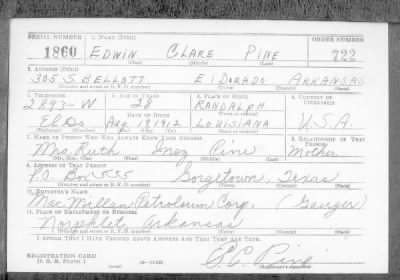 SERIAL NUMBER 1. NAME (Print) ORDER NUMBER
1860 EDWIN CLARE PINE 722
(First) (Middle) (Last)
2. ADDRESS (Print)
305 S. BELLOTT ElDORADO ARKANSAS
(Number and street or R. F. D. number) (Town) (County) (State)
3. TELEPHONE 4. AGE IN YEARS 5. PLACE OF BIRTH 6. COUNTRY OF CITIZENSHIP
2893-W 28 RANDALPH
DATE OF BIRTH (Town or county)
El Do Aug 18 1912 LOUISIANA U.S.A.
(Exchange) (Number) (Mo.) (Day) (Yr.) (State or country)
7. NAME OF PERSON WHO WILL ALWAYS KNOW YOUR ADDRESS 8. RELATIONSHIP OF THAT PERSON
Mrs. Ruth Inez Pine Mother
(Mr., Mrs., Miss) (First) (Middle) (Last)
9. ADDRESS OF THAT PERSON
P.O. Box 555 Gorgetown, Texas
(Number and street or R. F. D. number) (Town) (County) (State)
10. EMPLOYER'S NAME
MacMillan Petroleum Corp. (Gauger)
11. PLACE OF EMPLOYMENT OR BUSINESS
Norphlet, Arkansas
(Number and street or R. F. D. number) (Town) (County) (State)
I AFFIRM THAT I HAVE VERIFIED ABOVE ANSWERS AND THAT THEY ARE TRUE.
REGISTRATION CARD
D. S. S. FORM 1 E.C. Pine
(Registrant's signature)